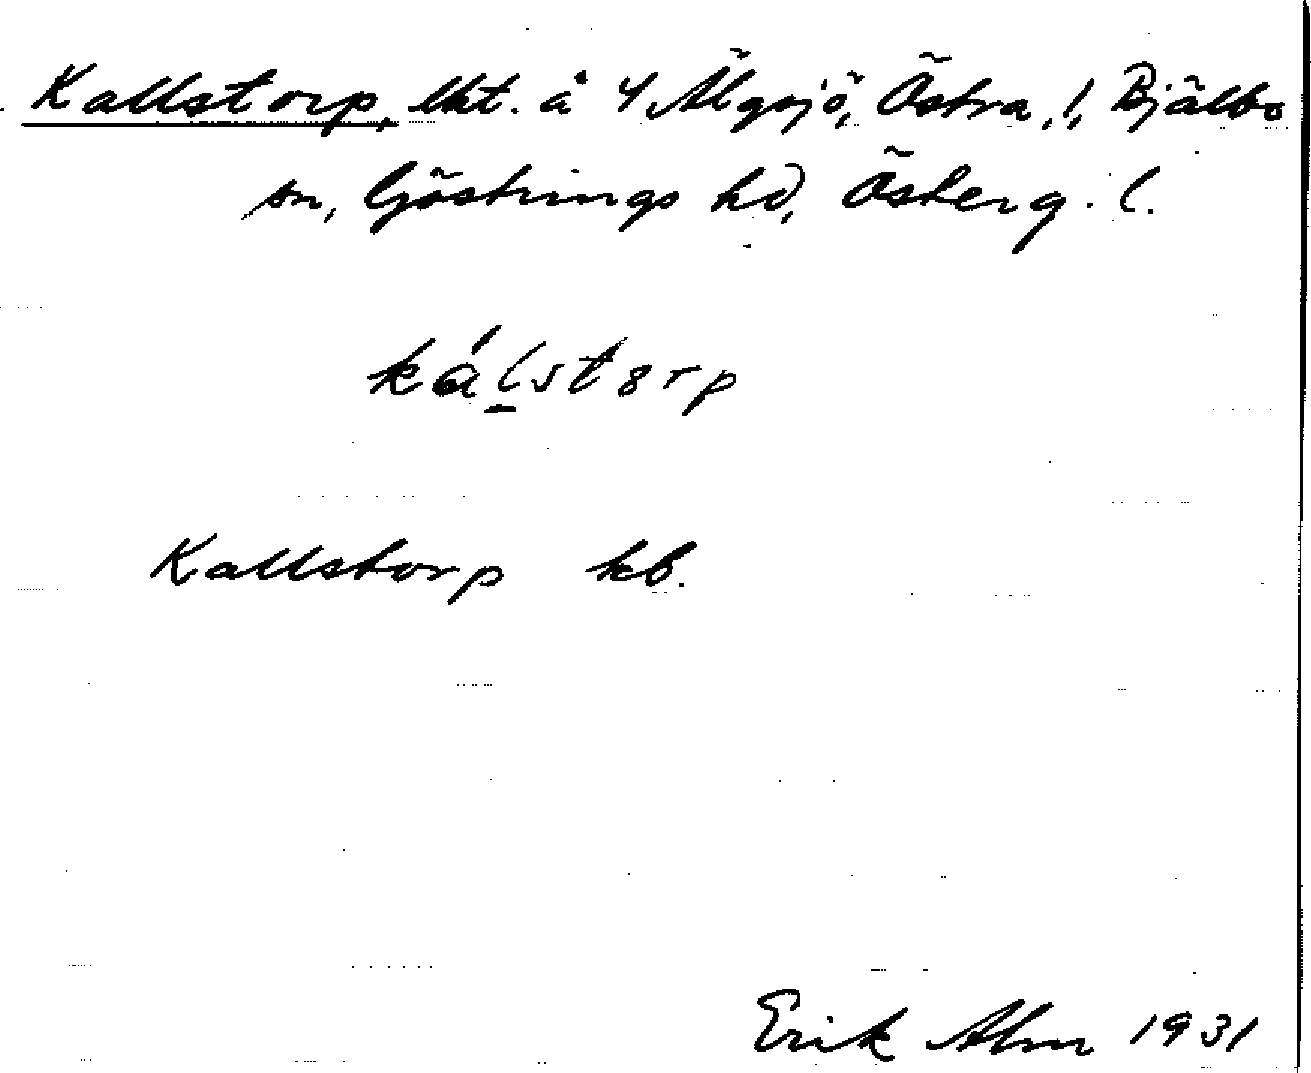 Kallstorp, lht. å 4 Älgsjö, Östra, l, Bjälbo
sn, Göstrings hd, Österg. l.
kálstɵrp
Kallstorp kb.
Erik Abm 1931